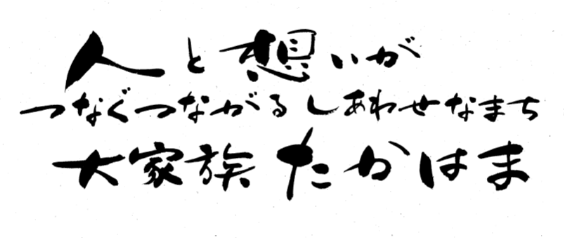 人と想いが
つなぐつながるしあわせなまち
大家族たかはま